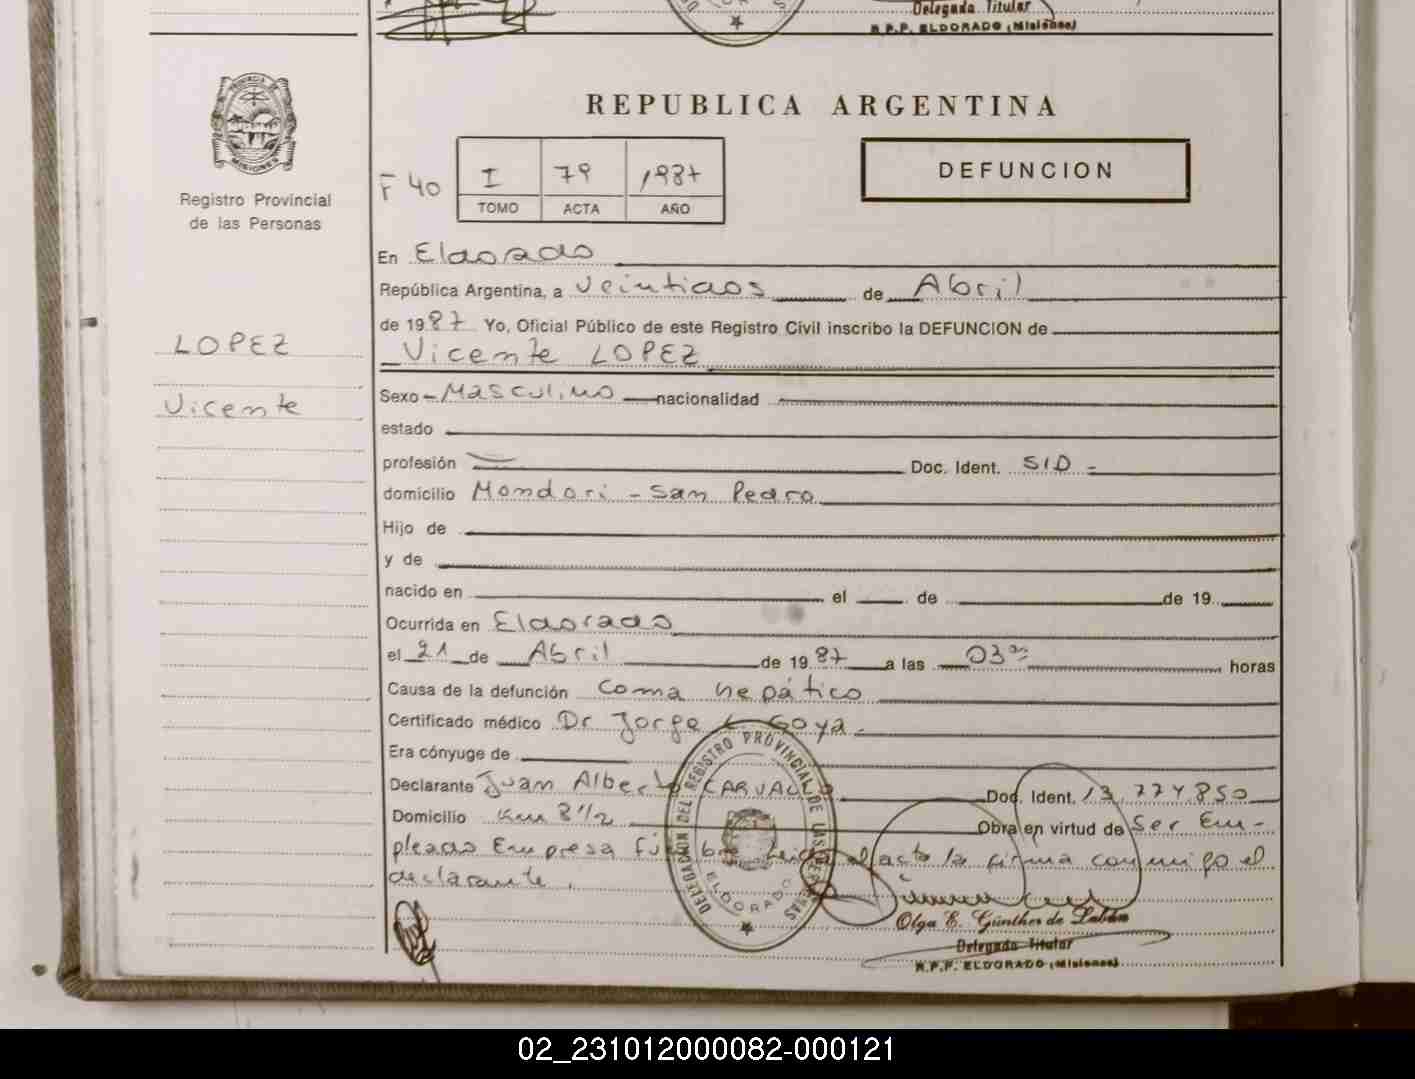 Delegada Titular
R.P.P. ELDORADO (Misiones)
PROVINCIA DE
MISIONES
Registro Provincial
de las Personas
LOPEZ
Vicente
REPUBLICA ARGENTINA
F 40
I 79 1987
TOMO ACTA AÑO
DEFUNCION
En Eldorado
República Argentina, a veintidos de Abril
de 1987 Yo, Oficial Público de este Registro Civil inscribo la DEFUNCION de
Vicente LOPEZ
Sexo - Masculino nacionalidad
estado
profesión Doc. Ident. S/D -
domicilio Mondori - San Pedro
Hijo de
y de
nacido en el de de 19
Ocurrida en Eldorado
el 21 de Abril de 1987 a las 03 horas
Causa de la defunción Coma hepático
Certificado médico Dr Jorge L Goya -
Era cónyuge de
Declarante Juan Alberto CARVALLO Doc. Ident. 13.774.850
Domicilio Km 8 1/2 Obra en virtud de Ser Em-
pleado Empresa Fúnebre, leida el acta la firma conmigo el
declarante.
DELEGACION DEL REGISTRO PROVINCIAL DE LAS PERSONAS
ELDORADO
Olga E. Günther de Labán
Delegada Titular
R.P.P. ELDORADO (Misiones)
02_231012000082-000121